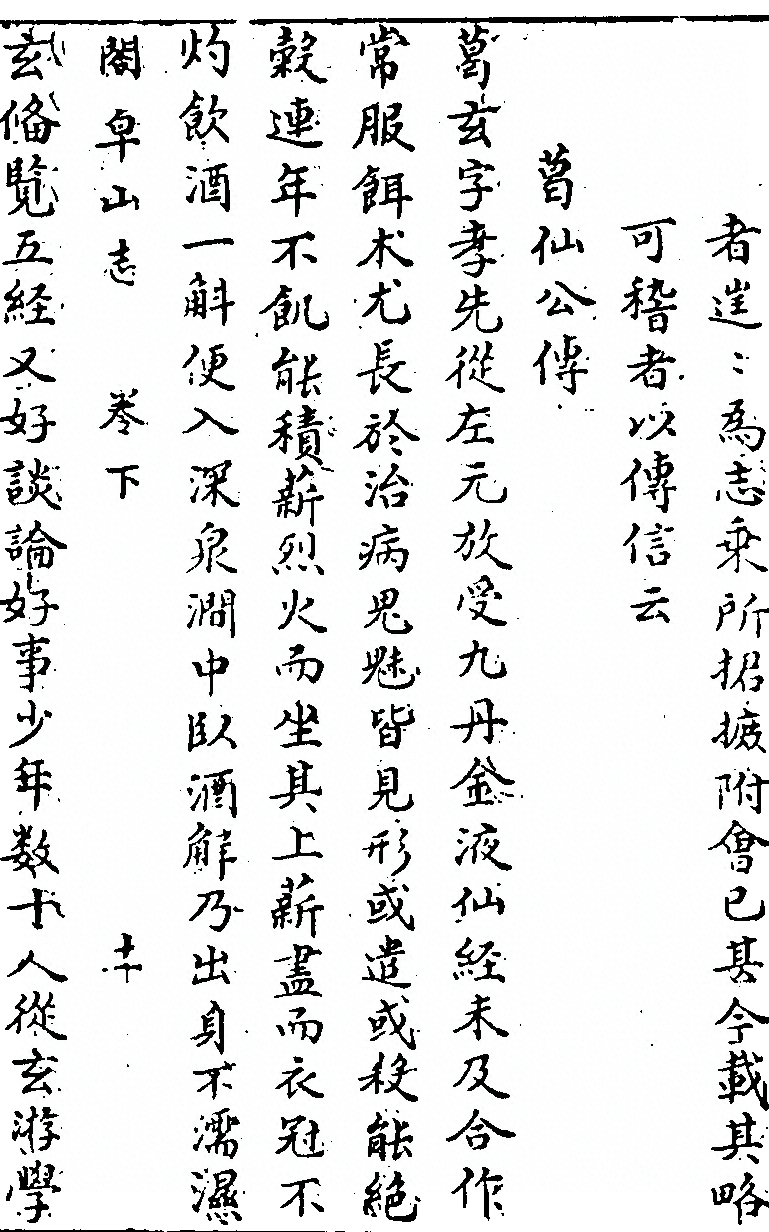 者遑〻為志乗所招摭附會已甚今載其略
可稽者以傳信云
葛仙公傳
葛玄字孝先從左元放受九丹金液仙経未及合作
常服餌术尤長於治病鬼魅皆見形或遣或殺能絶
穀連年不飢能積薪烈火而坐其上薪盡而衣冠不
灼飲酒一斛便入深泉澗中臥酒解乃出身不濡濕
閤皁山志　卷下　十一
玄俻覧五経又好談論好事少年数十人從玄游學